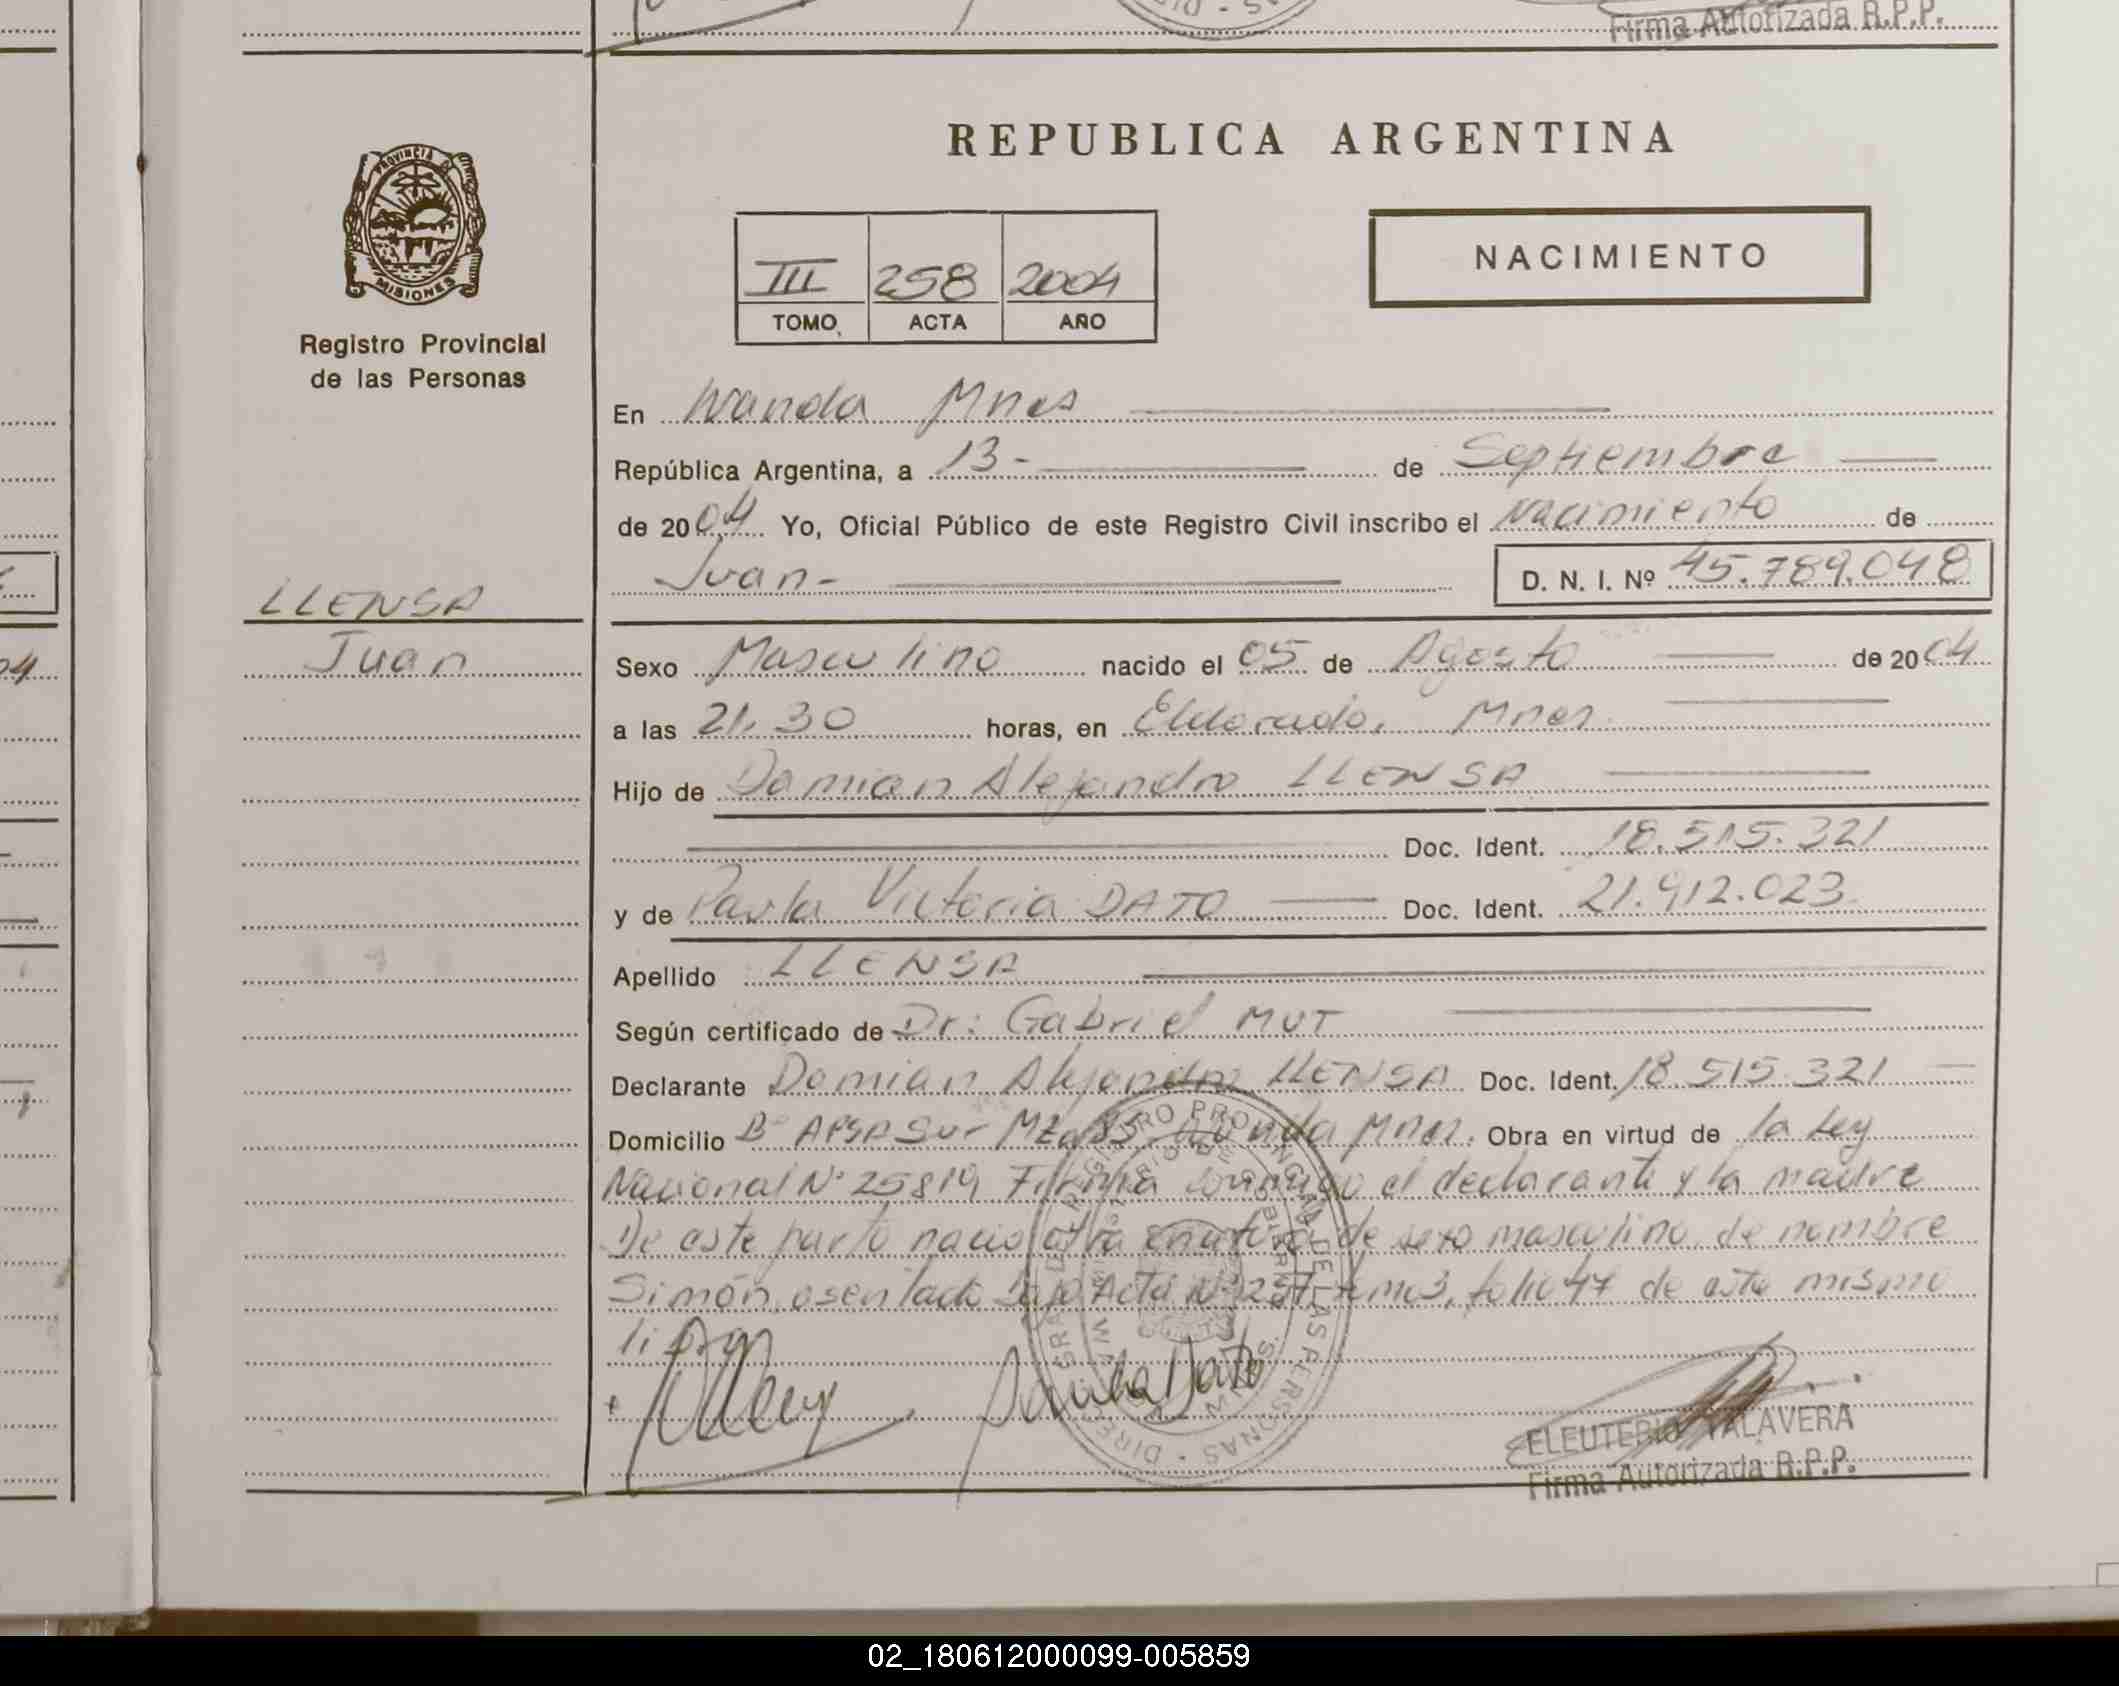 Firma Autorizada R.P.P.
PROVINCIA DE
MISIONES
Registro Provincial
de las Personas
REPUBLICA ARGENTINA
III 258 2004
TOMO ACTA AÑO
NACIMIENTO
En Wanda Mnes
República Argentina, a 13- de Septiembre
de 2004 Yo, Oficial Público de este Registro Civil inscribo el Nacimiento de
Juan- D. N. I. Nº 45.789.048
LLENSA
Juan
Sexo Masculino nacido el 05 de Agosto de 2004
a las 21.30 horas, en Eldorado, Mnes.
Hijo de Damian Alejandro LLENSA
Doc. Ident. 18.515.321
y de Paula Victoria DATO Doc. Ident. 21.912.023
Apellido LLENSA
Según certificado de Dr: Gabriel MUT
Declarante Damian Alejandro LLENSA Doc. Ident. 18.515.321
Domicilio Bº APSA Sur Mza Wanda Mnes. Obra en virtud de la Ley
Nacional Nº 25819 Firma conmigo el declarante y la madre
De este parto nacio otra criatura de sexo masculino de nombre
Simón, asentado bajo Acta Nº 257 tomo 3, folio 47 de este mismo
libro
Paula Dato
REGISTRO PROVINCIAL DE LAS PERSONAS
ELEUTERIO TALAVERA
Firma Autorizada R.P.P.
02_180612000099-005859